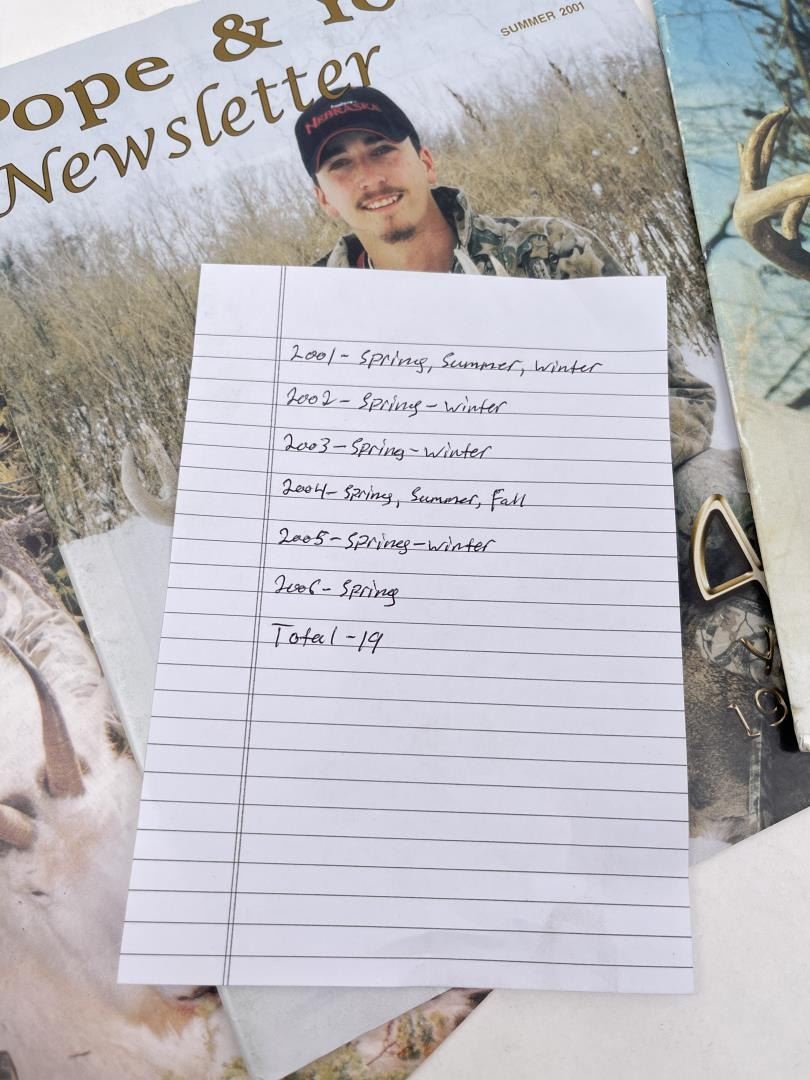 Pope & Yo
SUMMER 2001
Newsletter
NEBRASKA
2001 - Spring, Summer, Winter
2002 - Spring - Winter
2003 - Spring - Winter
2004 - Spring, Summer, Fall
2005 - Spring - Winter
2006 - Spring
Total - 19
Y
19